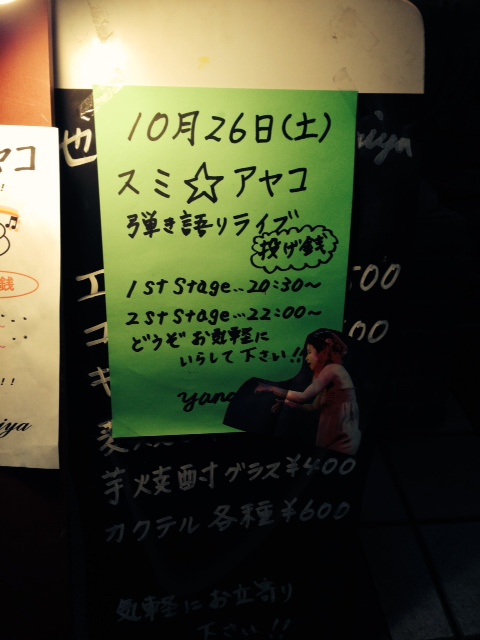 10月26日(土)
スミ☆アヤコ
弾き語りライブ
投げ銭
1st Stage...20:30～
2st Stage...22:00～
どうぞお気軽に
いらして下さい!!
yana
也
iya
エ
:00
コ
00
キ
麦
芋焼酎グラス¥400
カクテル各種¥600
気軽にお立寄り
下さい!!
ヤコ
銭
!!
iya